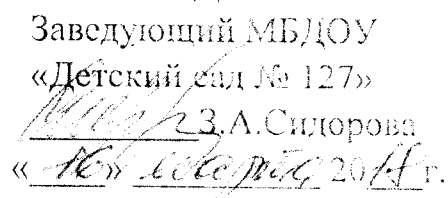 Заведующий МБДОУ
«Детский сад № 127»
З.А.Сидорова
«16» марта 2018 г.